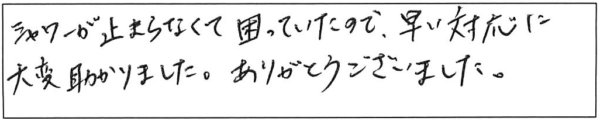 シャワーが止まらなくて困っていたので、早い対応に
大変助かりました。ありがとうございました。